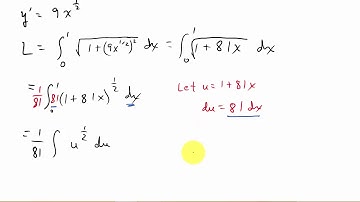 y' = 9x^{1/2}
L = ∫_0^1 √(1+(9x^{1/2})^2) dx = ∫_0^1 √(1+81x) dx
= 1/81 ∫_0^1 81(1+81x)^{1/2} dx
Let u = 1+81x
du = 81 dx
= 1/81 ∫ u^{1/2} du